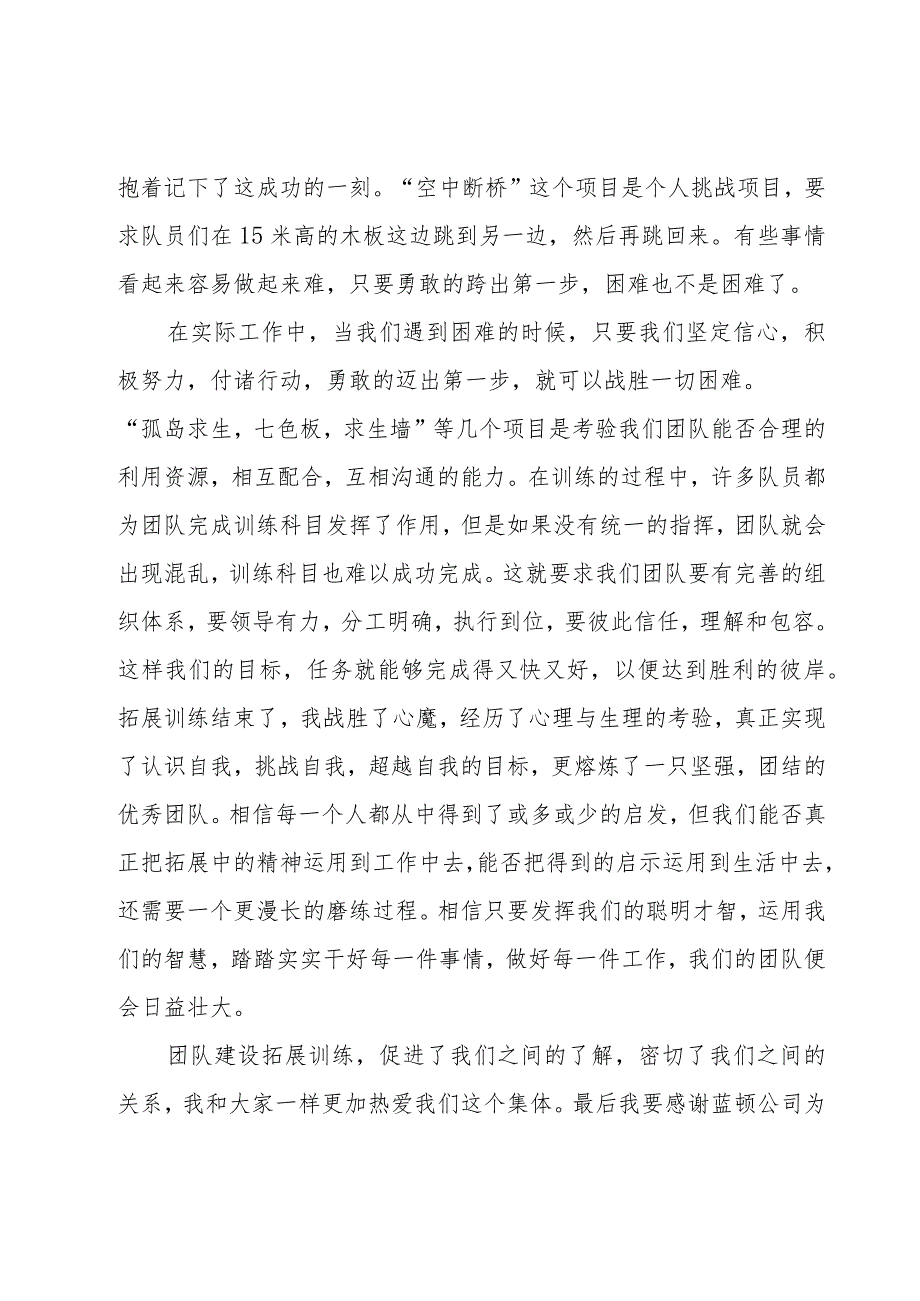 抱着记下了这成功的一刻。“空中断桥”这个项目是个人挑战项目，要
求队员们在 15 米高的木板这边跳到另一边，然后再跳回来。有些事情
看起来容易做起来难，只要勇敢的跨出第一步，困难也不是困难了。
在实际工作中，当我们遇到困难的时候，只要我们坚定信心，积
极努力，付诸行动，勇敢的迈出第一步，就可以战胜一切困难。
“孤岛求生，七色板，求生墙”等几个项目是考验我们团队能否合理的
利用资源，相互配合，互相沟通的能力。在训练的过程中，许多队员都
为团队完成训练科目发挥了作用，但是如果没有统一的指挥，团队就会
出现混乱，训练科目也难以成功完成。这就要求我们团队要有完善的组
织体系，要领导有力，分工明确，执行到位，要彼此信任，理解和包容。
这样我们的目标，任务就能够完成得又快又好，以便达到胜利的彼岸。
拓展训练结束了，我战胜了心魔，经历了心理与生理的考验，真正实现
了认识自我，挑战自我，超越自我的目标，更熔炼了一只坚强，团结的
优秀团队。相信每一个人都从中得到了或多或少的启发，但我们能否真
正把拓展中的精神运用到工作中去，能否把得到的启示运用到生活中去，
还需要一个更漫长的磨练过程。相信只要发挥我们的聪明才智，运用我
们的智慧，踏踏实实干好每一件事情，做好每一件工作，我们的团队便
会日益壮大。
团队建设拓展训练，促进了我们之间的了解，密切了我们之间的
关系，我和大家一样更加热爱我们这个集体。最后我要感谢蓝顿公司为